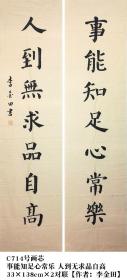 事能知足心常樂
人到無求品自高
李金田書
C714号画芯
事能知足心常乐 人到无求品自高
33×138cm×2对联【作者：李金田】